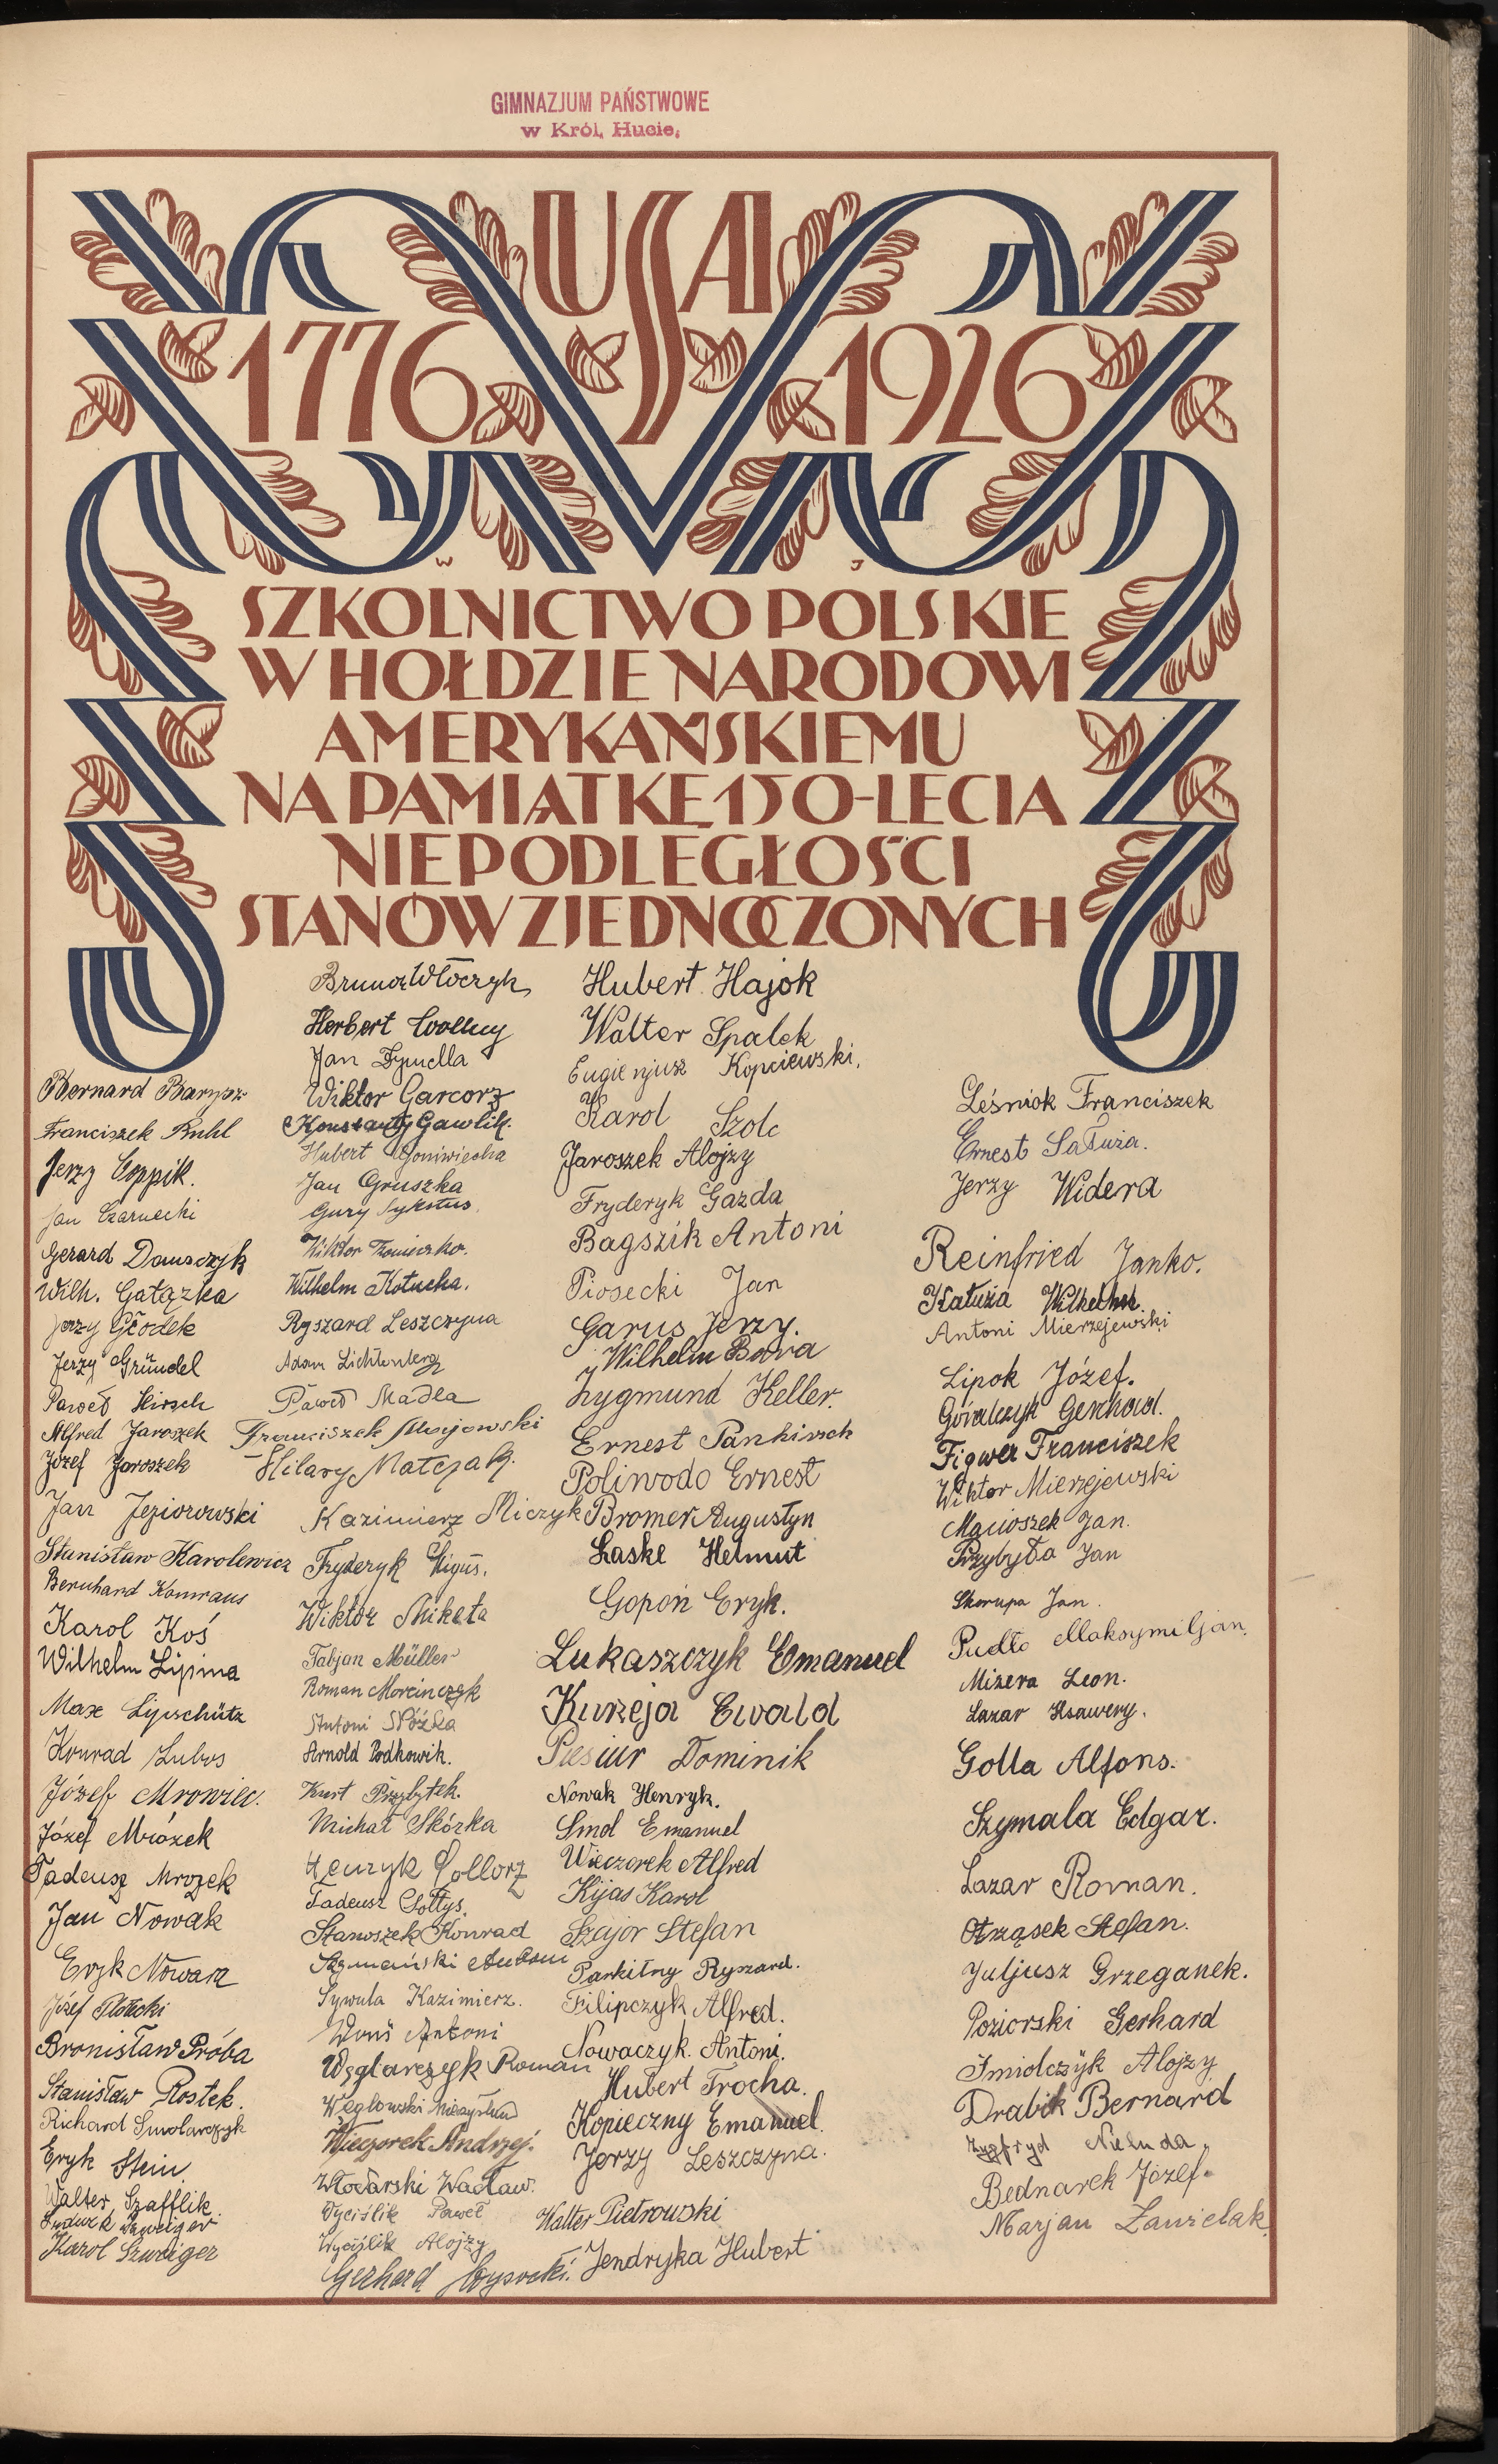 GIMNAZJUM PAŃSTWOWE
w Król. Hucie.
USA
1776 1926
W J
SZKOLNICTWO POLSKIE
W HOŁDZIE NARODOWI
AMERYKAŃSKIEMU
NA PAMIĄTKĘ 150-LECIA
NIEPODLEGŁOŚCI
STANÓW ZJEDNOCZONYCH
Bernard
Franciszek Buhl
Jerzy Coppik.
Jan Czarnecki
Gerard Dauszczyk
Wilh. Gałązka
Jerzy Głodek
Jerzy Gründel
Paweł Hirsch
Alfred Jaroszek
Józef Jaroszek
Jan Jeziorowski
Stanisław Karolewicz
Bernhard
Karol Koś
Wilhelm Lipina
Max Lipschütz
Konrad Lubos
Józef Mrowiec.
Józef Mrózek
Tadeusz Mrozek
Jan Nowak
Eryk Nowara
Józef Płotecki
Bronisław Próba
Stanisław Rostek.
Richard Smolarczyk
Eryk Stein
Walter Szafflik
Szweiger
Karol Szweiger
Bruno Włóczyk
Herbert
Jan
Wiktor Garcorz
Konstanty Gawlik.
Hubert Goniwiecha
Jan Gruszka
Gury Sykstus
Wiktor
Wilhelm Kotucha.
Ryszard Leszczyna
Adam Lichtenberg
Paweł Madla
Franciszek Majowski
Hilary Matejak.
Kazimierz Miczyk
Fryderyk Migus.
Wiktor Miketa
Fabjan Müller
Roman Morcinczyk
Antoni Nóżka
Arnold Podkowik.
Kurt Przybytek.
Michał Skórka
Henryk Sollorz
Tadeusz Sołtys.
Stanoszek Konrad
Szymański
Sywula Kazimierz.
Woś Antoni
Węglarczyk Roman
Węglowski Mieczysław
Wieczorek Andrzej.
Włodarski Wacław.
Wyciślik Paweł
Wyciślik Alojzy
Gerhard Wysocki.
Hubert Hajok
Walter Spalek
Eugienjusz Kopciewski.
Karol Szolc
Jaroszek Alojzy
Fryderyk Gazda
Bagszik Antoni
Piosecki Jan
Garus Jerzy.
Wilhelm Bara
Zygmund Keller.
Ernest Pankirsch
Poliwoda Ernest
Bromer Augustyn
Laske Helmut
Gopoń Eryk.
Lukaszczyk Emanuel
Kurzeja Ewald
Piesiur Dominik
Nowak Henryk.
Smol Emanuel
Wieczorek Alfred
Kijas Karol
Szajor Stefan
Parkitny Ryszard.
Filipczyk Alfred.
Nowaczyk. Antoni.
Hubert Trocha.
Kopieczny Emanuel
Jerzy Leszczyna.
Walter Pietrowski
Jendryka Hubert
Leśniok Franciszek
Ernest Sałuża.
Jerzy Widera
Reinfried Janko.
Kałuża Wilhelm.
Antoni Mierzejewski
Lipok Józef.
Góralczyk Gerhard.
Figwer Franciszek
Wiktor Mierzejewski
Macioszek Jan.
Przybyła Jan
Skorupa Jan.
Pudło Maksymiljan.
Mizera Leon.
Lazar Ksawery.
Golla Alfons.
Szymala Edgar.
Lazar Roman.
Otrząsek Stefan.
Juljusz Grzeganek.
Poziorski Gerhard
Smiolczyk Alojzy
Drabik Bernard
Zygfryd Nieluda
Bednarek Józef.
Marjan Zawielak